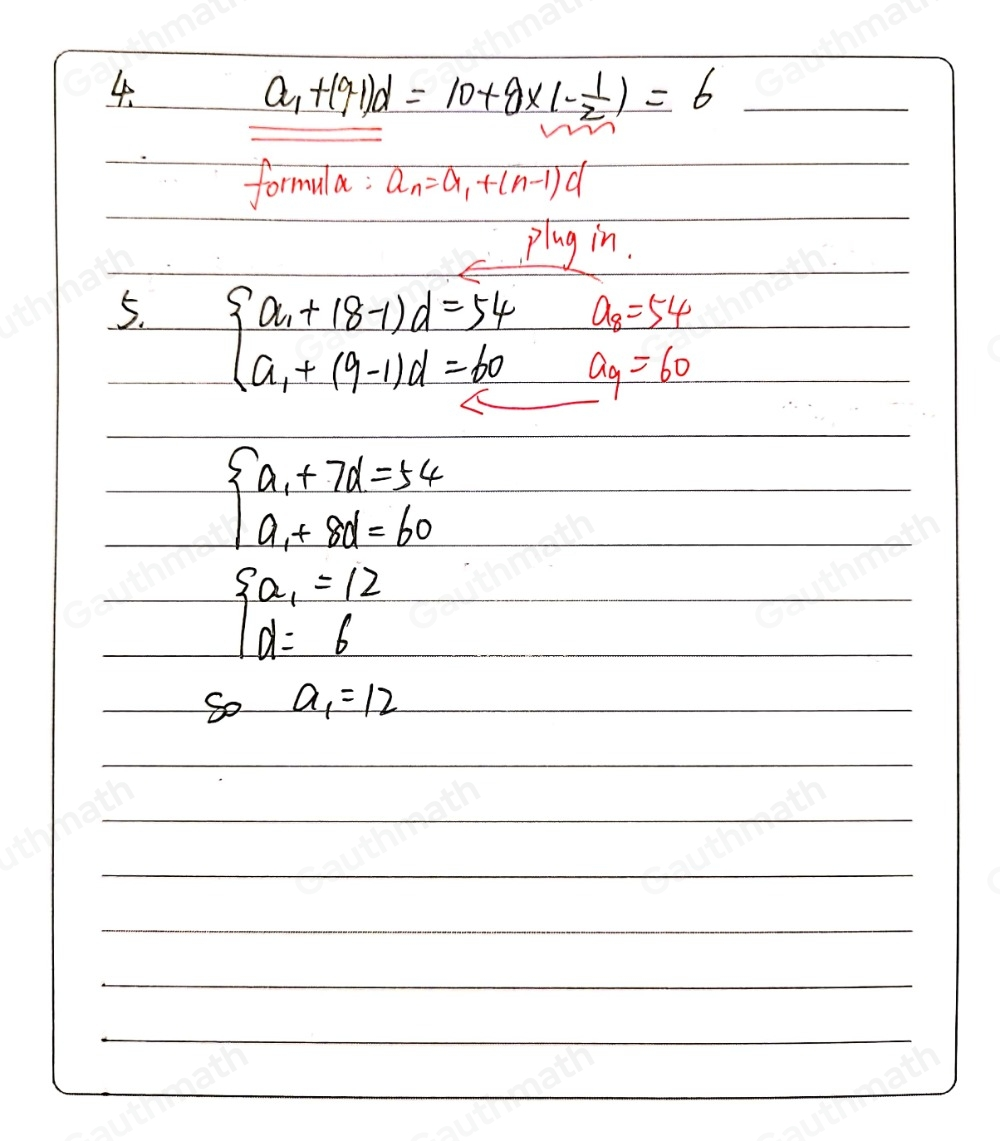 4. a₁+(9-1)d = 10+8×(-1/2) = 6
formula : aₙ=a₁+(n-1)d
plug in.
5. { a₁+(8-1)d=54 a₈=54
a₁+(9-1)d=60 a₉=60
{ a₁+7d=54
a₁+8d=60
{ a₁=12
d= 6
so a₁=12
Gauthmath